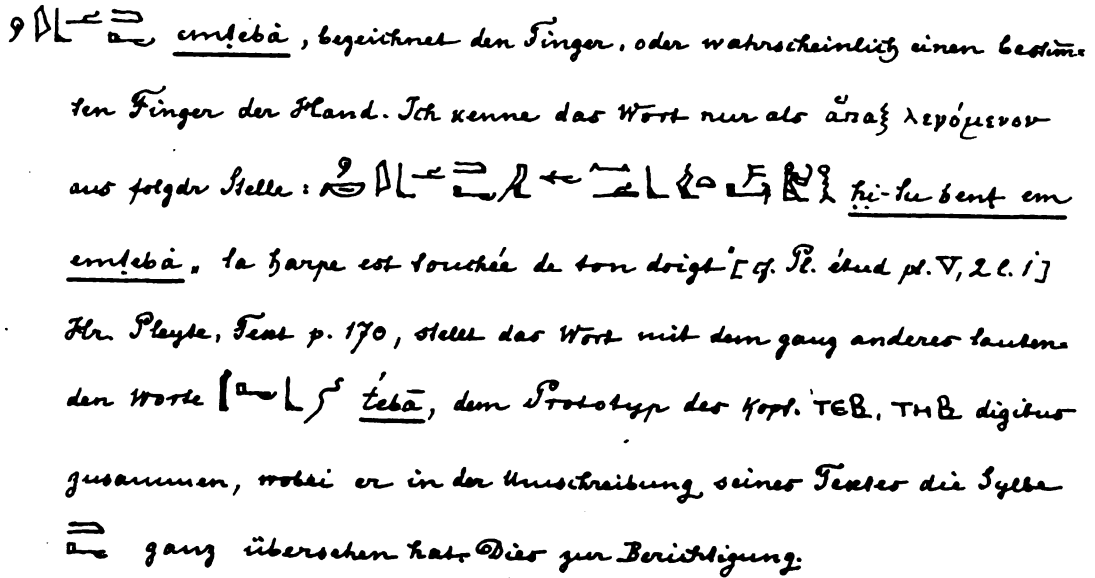 emṭebȧ, bezeichnet den Finger, oder wahrscheinlich einen bestim̄-
ten Finger der Hand. Ich kenne das Wort nur als ἅπαξ λεγόμενον
aus folgdr Stelle: ḥi-tu bent em
emṭebȧ „la harpe est touchée de ton doigt" [cf. Pl. étud pl. V, 2 l. 1]
Hr. Pleyte, Text p. 170, stellt das Wort mit dem ganz anderes lauten-
den Worte t́ebā, dem Prototyp des kopt. ⲦⲈⲂ, ⲦⲎⲂ digitus
zusammen, wobei er in der Umschreibung seines Textes die Sylbe
ganz übersehen hat. Dies zur Berichtigung.